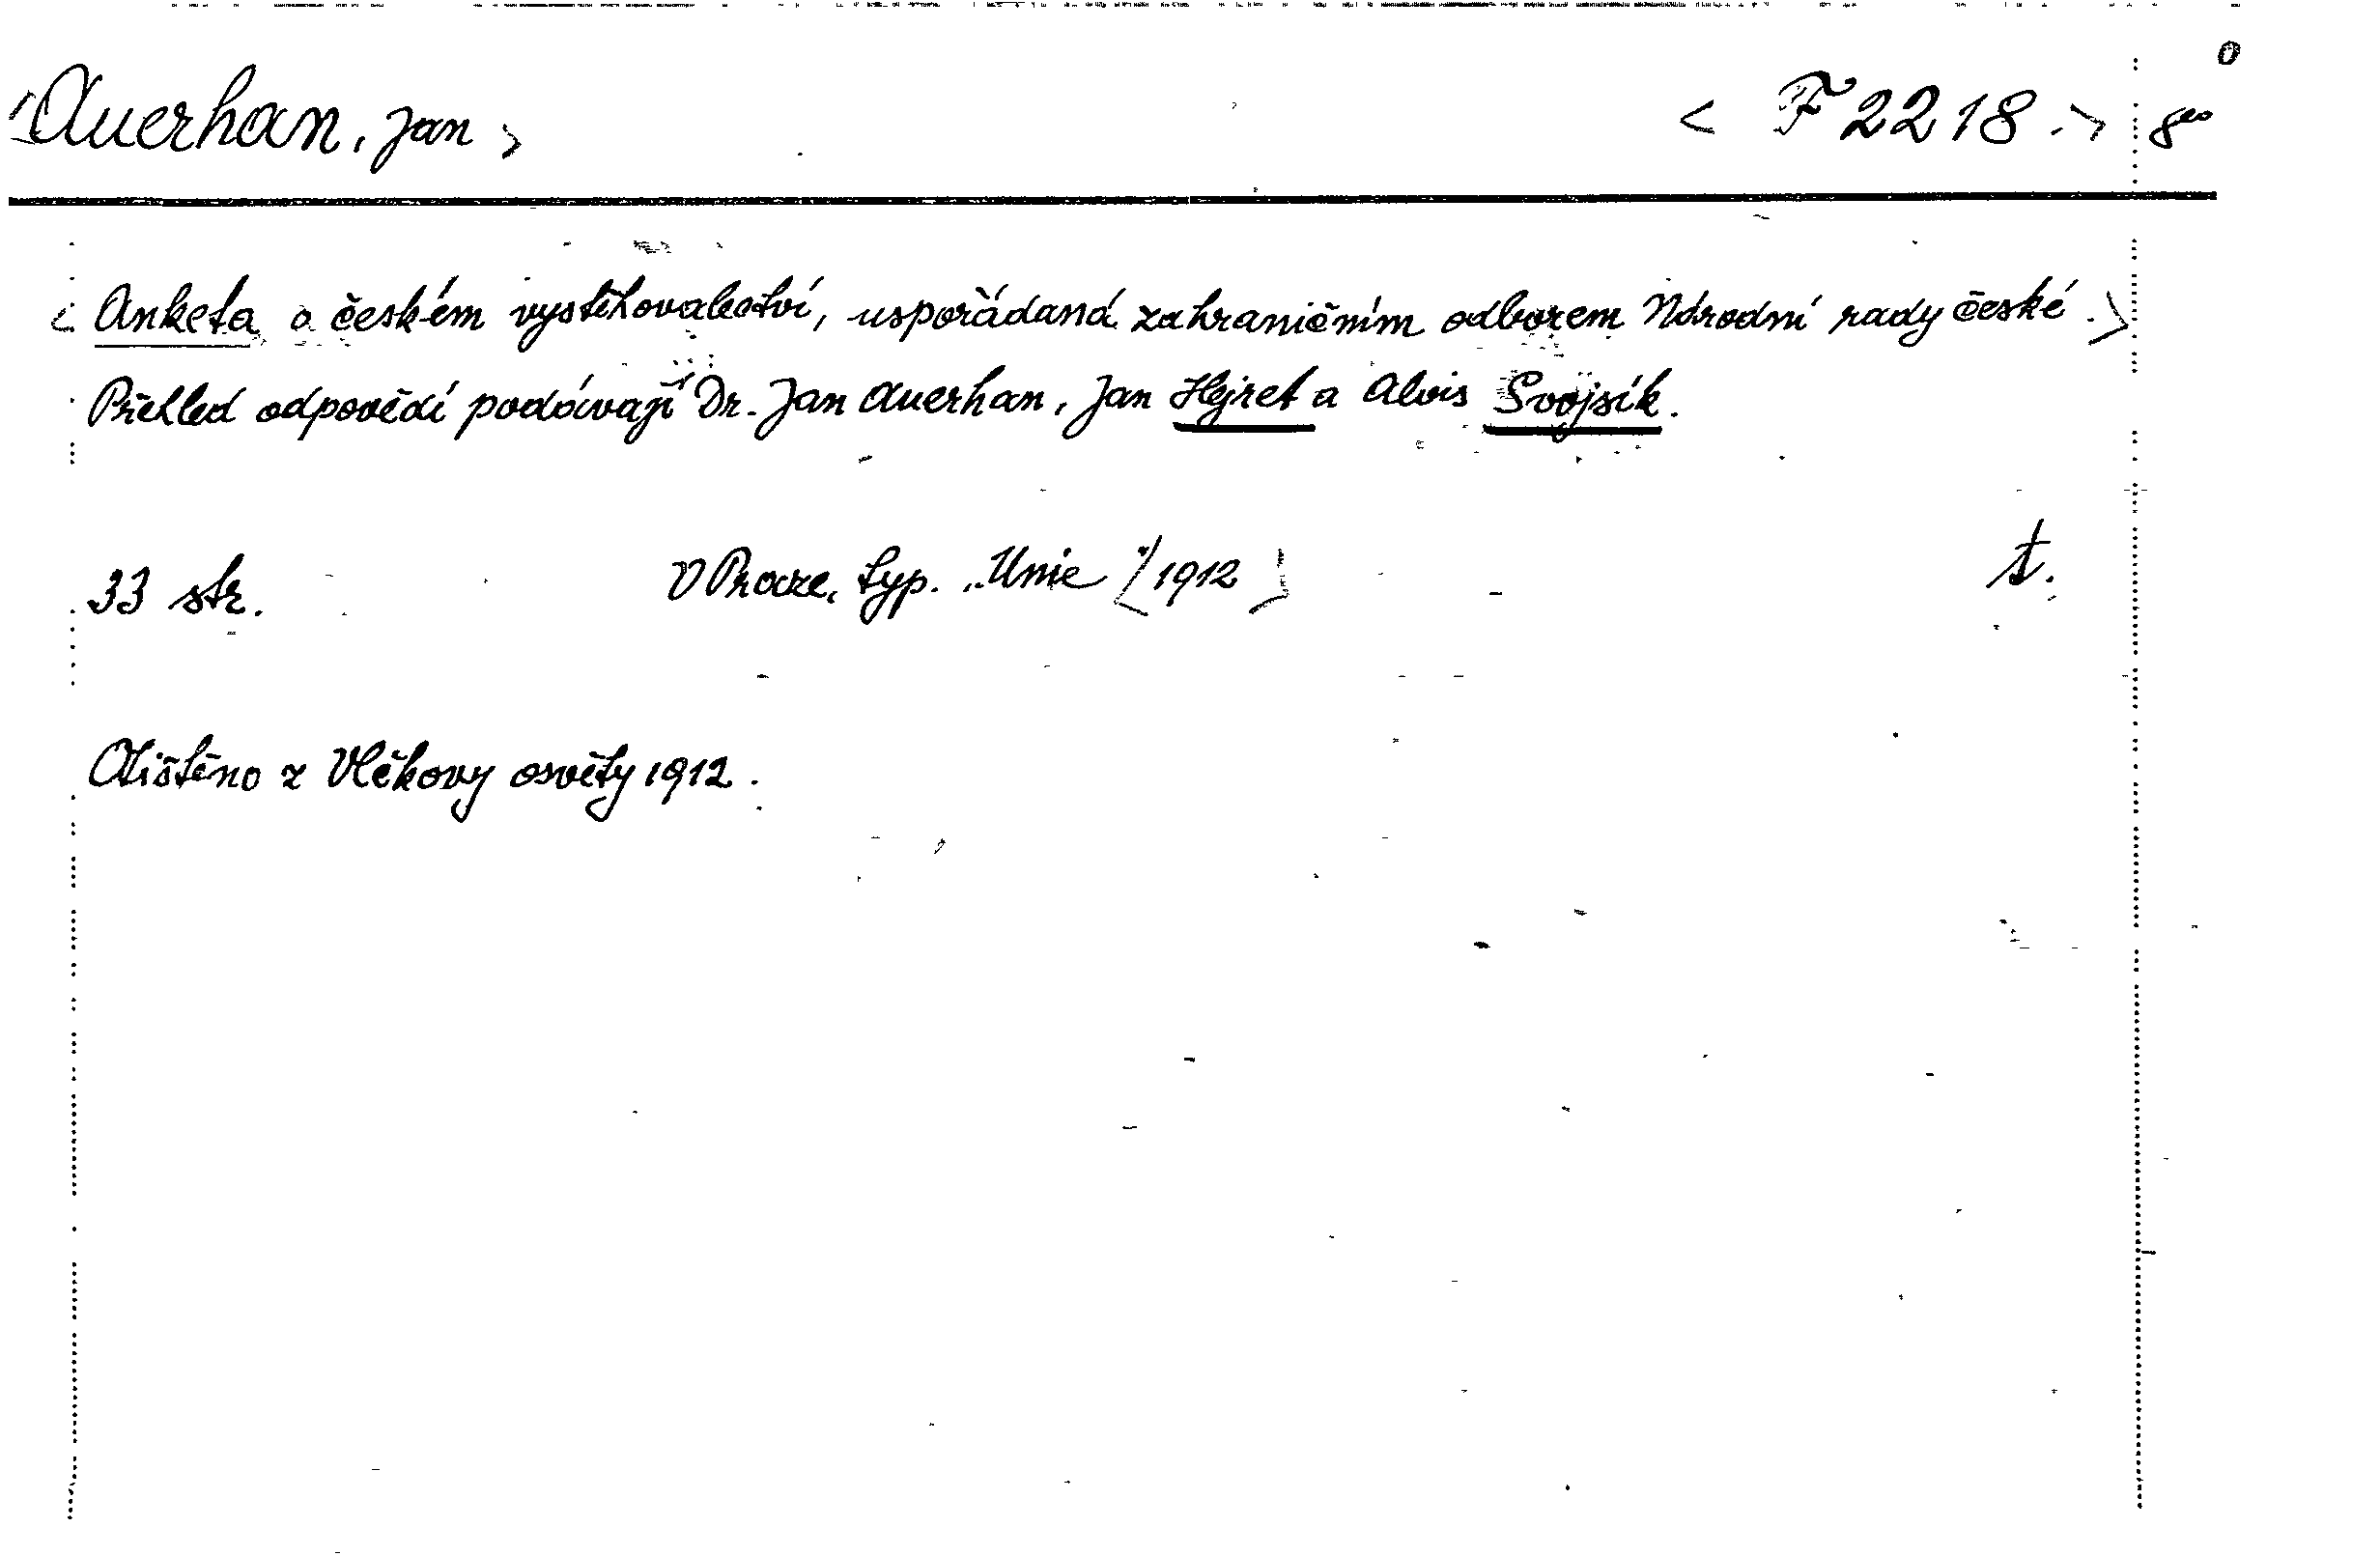 <Auerhan, Jan> <F 2218.> 8°
<Anketa o českém vystěhovalectví, uspořádaná zahraničním odborem Národní rady české.>
Přehled odpovědí podávají Dr. Jan Auerhan, Jan Hejret a Alois Svojsík.
33 str. V Praze, typ. „Unie" [1912]
Otištěno z Vlčkovy osvěty 1912.